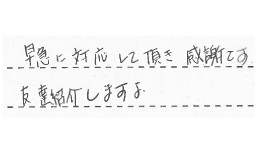 早急に対応して頂き感謝です
友達紹介しますよ